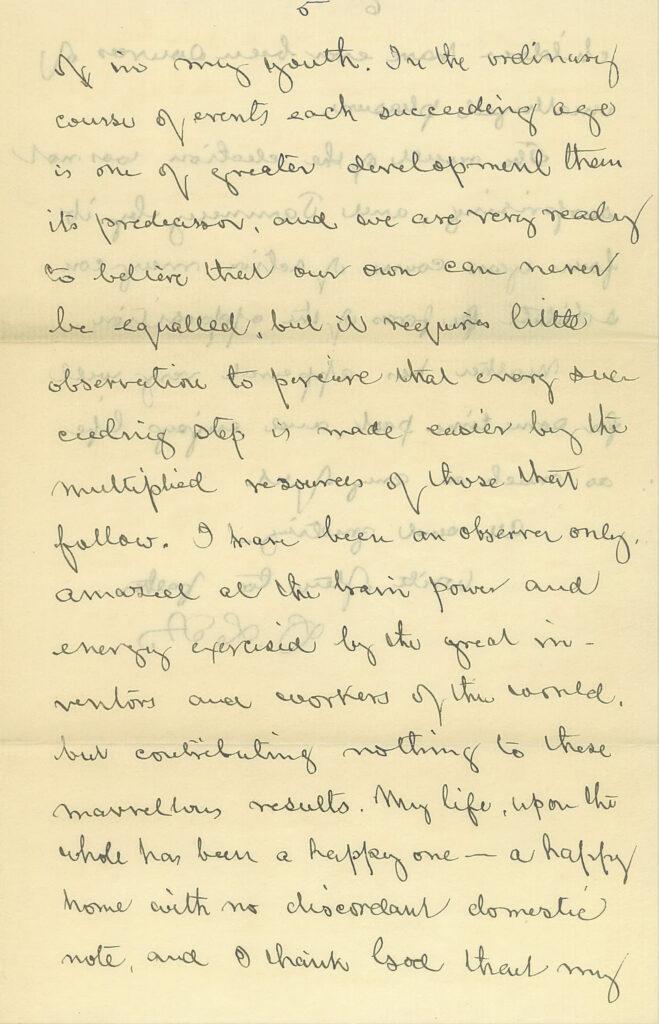 5
of in my youth. In the ordinary
course of events each succeeding age
is one of greater development than
its predecessor, and we are very ready
to believe that our own can never
be equalled, but it requires little
observation to perceive that every suc-
ceeding step is made easier by the
multiplied resources of those that
follow. I have been an observer only,
amazed at the brain power and
energy exercised by the great in-
ventors and workers of the world,
but contributing nothing to these
marvellous results. My life, upon the
whole has been a happy one — a happy
home with no discordant domestic
note, and I thank God that my